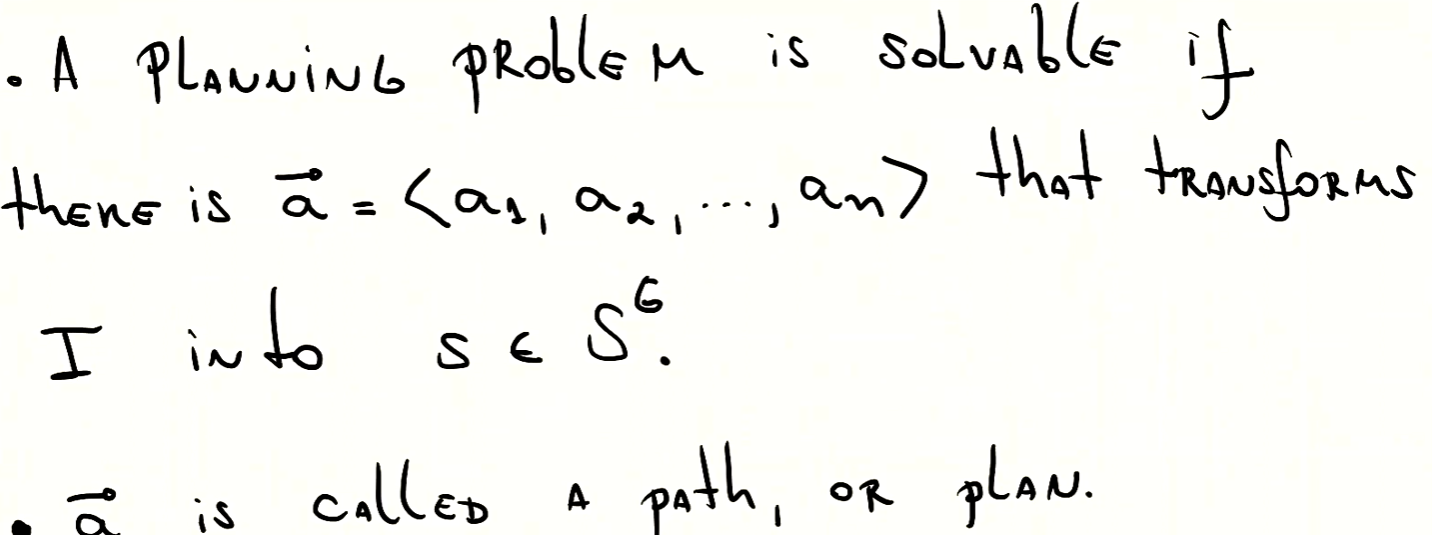 • A planning problem is solvable if
there is a⃗ = ⟨a₁, a₂, ..., aₙ⟩ that transforms
I into s ∈ Sᴳ.
• a⃗ is called a path, or plan.